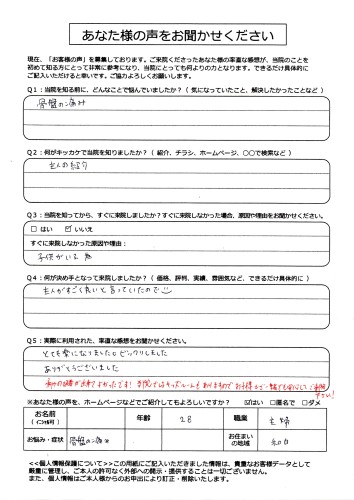 あなた様の声をお聞かせください
現在、「お客様の声」を募集しております。ご来院くださったあなた様の率直な感想が、当院のことを
初めて知る方にとって非常に参考になり、当院にとっても何よりの力となります。できるだけ具体的に
ご記入いただけると幸いです。ご協力よろしくお願いします。
Q1：当院を知る前に、どんなことで悩んでいましたか？（ 気になっていたこと、解決したかったことなど ）
骨盤の痛み
Q2：何がキッカケで当院を知りましたか？（ 紹介、チラシ、ホームページ、〇〇で検索など ）
主人の紹介
Q3：当院を知ってから、すぐに来院しましたか？すぐに来院しなかった場合、原因や理由をお聞かせください。
□ はい ☑ いいえ
すぐに来院しなかった原因や理由：
子供がいる為
Q4：何が決め手となって来院しましたか？（ 価格、評判、実績、雰囲気など、できるだけ具体的に ）
主人がすごく良いと言っていたので
Q5：実際に利用された、率直な感想をお聞かせください。
とても楽になりました。ビックリしました
ありがとうございました
※あなた様の声を、ホームページなどでご紹介してもよろしいですか？ ☑はい □匿名で □ダメ
お名前
（イニシャル可）
年齢
28
職業
主婦
お悩み・症状
骨盤の痛み
お住まい
の地域
<<個人情報保護について>>この用紙にご記入いただきました情報は、貴重なお客様データとして
厳重に管理し、ご本人の許可なく外部への開示・提供することは一切ございません。
また、個人情報はご本人様からのお申出により訂正・削除いたします。